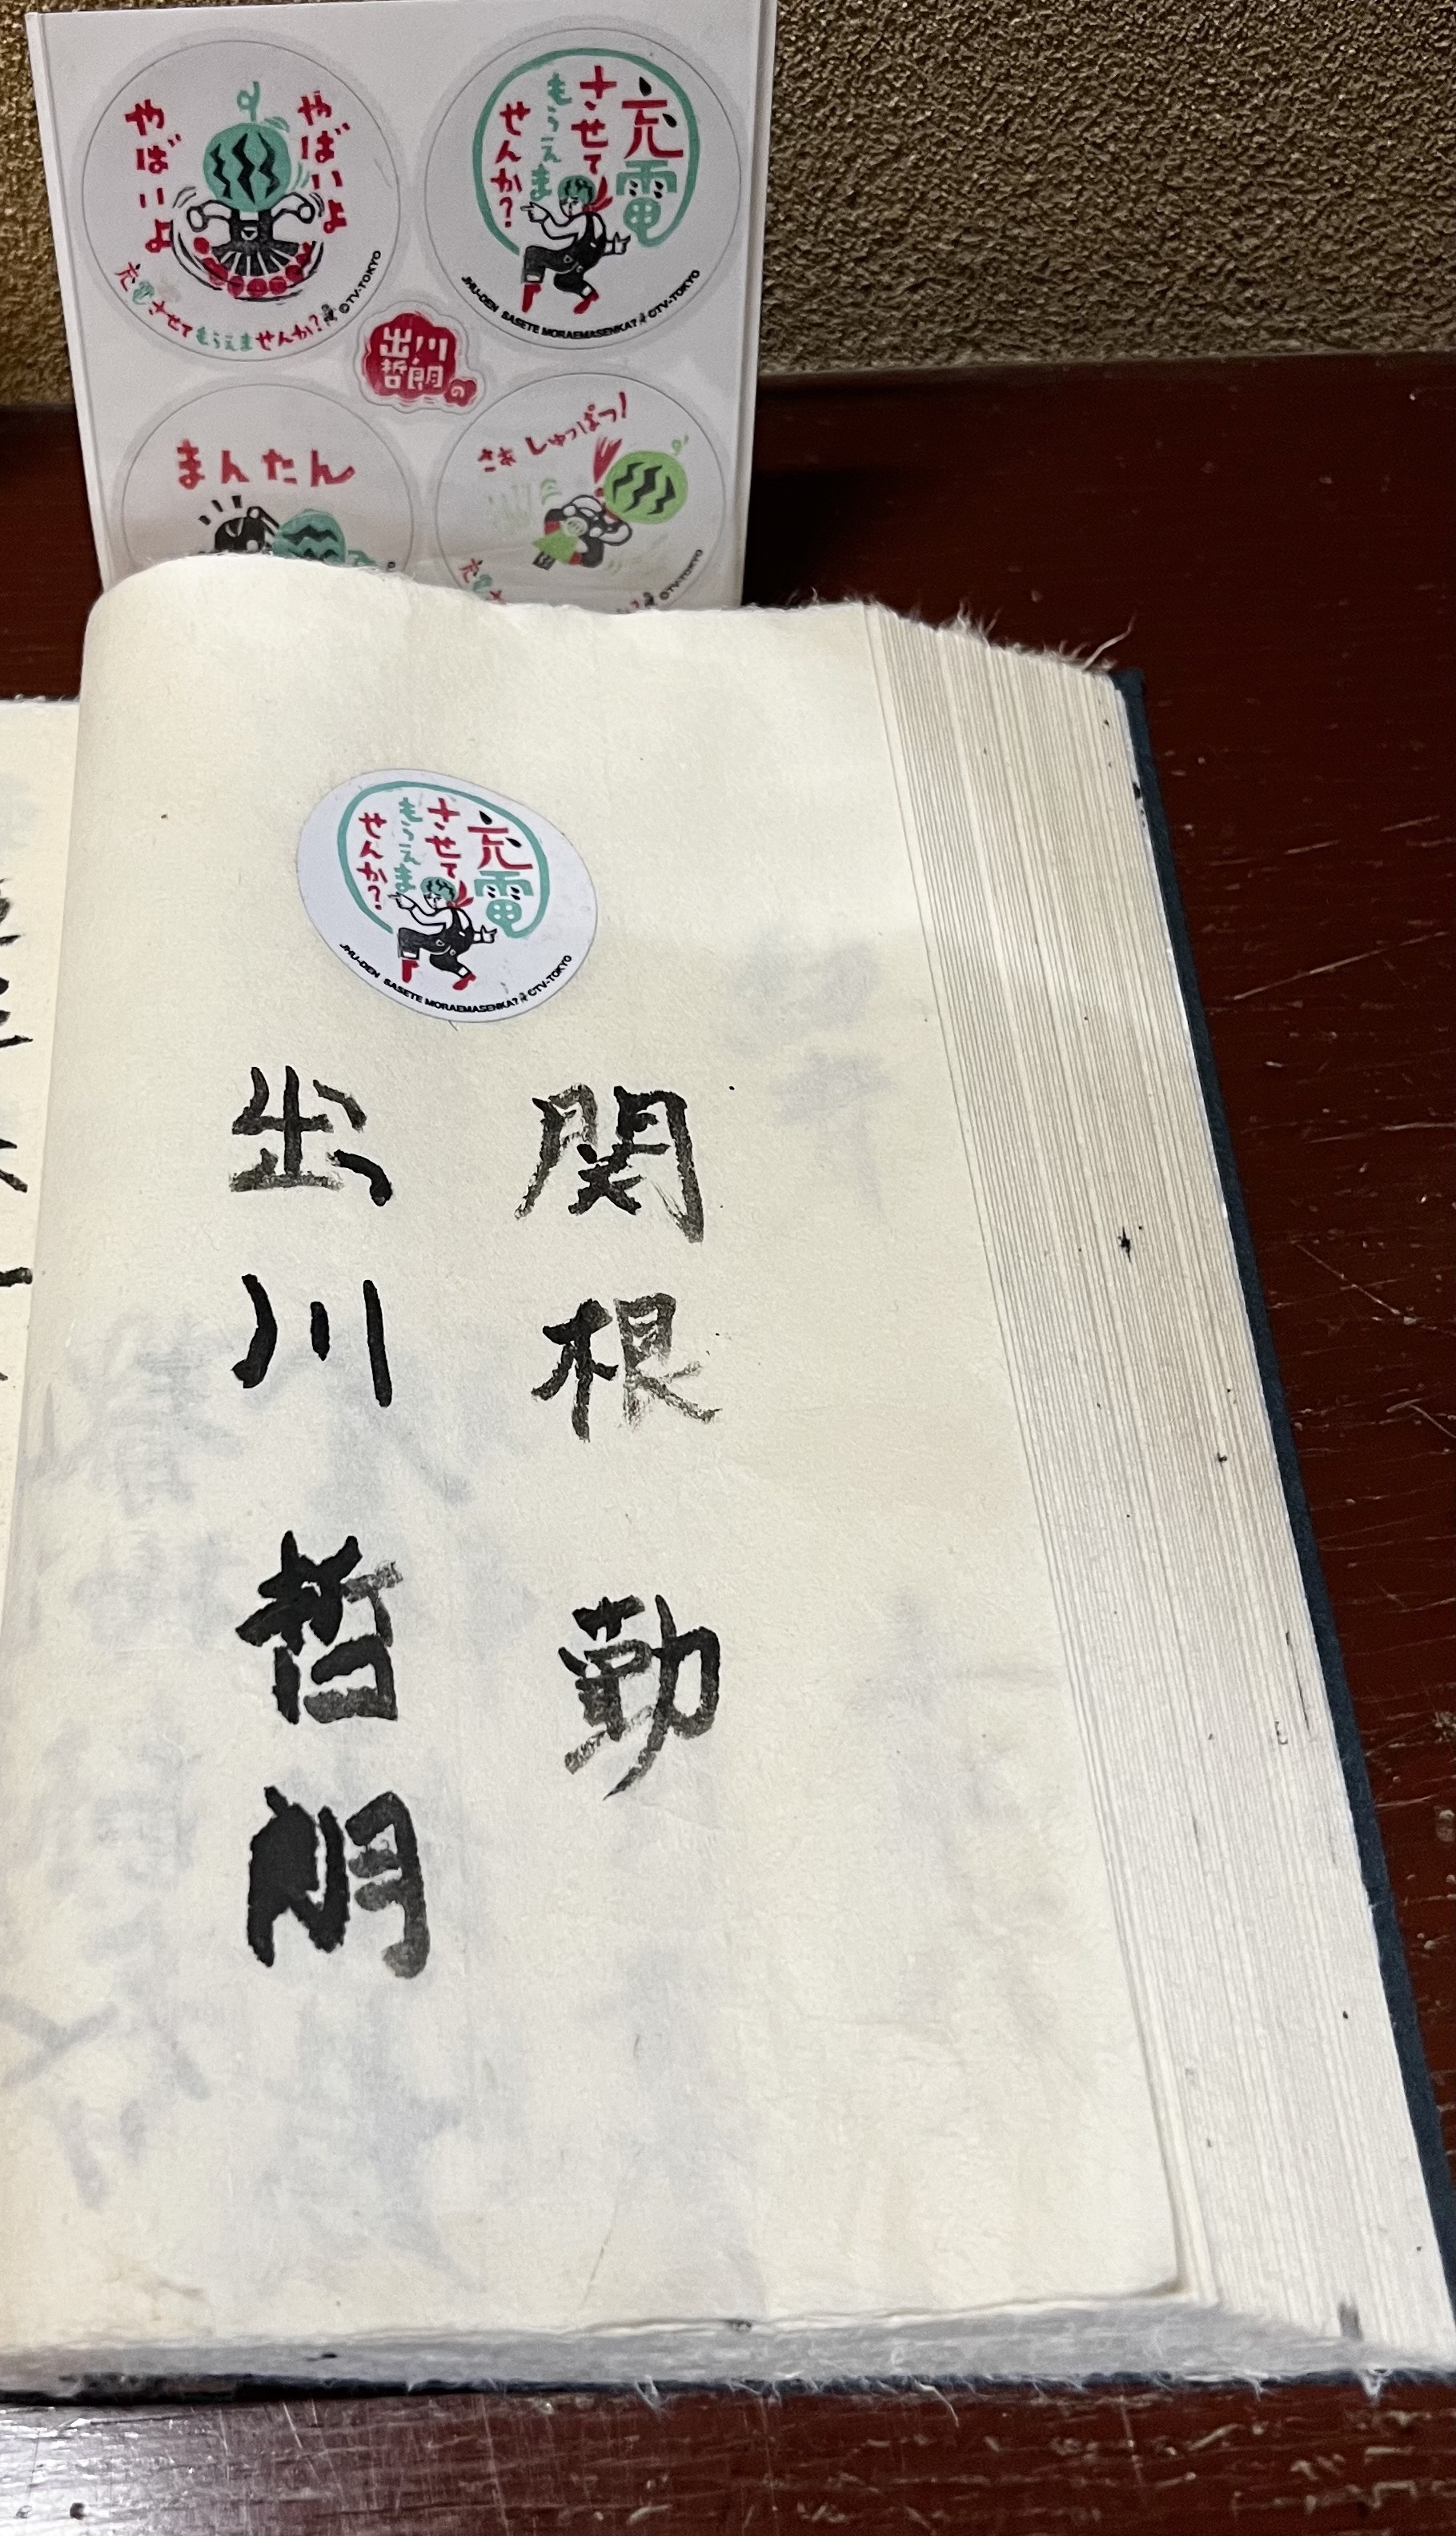 やばいよ
やばいよ
充電させてもらえませんか?
©TV-TOKYO
充電
させて
もらえま
せんか?
JHU-DEN SASETE MORAEMASENKA? ©TV-TOKYO
出川
哲朗の
まんたん
さあ しゅっぱつ!
©TV-TOKYO
充電
させて
もらえま
せんか?
JHU-DEN SASETE MORAEMASENKA? ©TV-TOKYO
関根 勤
出川 哲朗